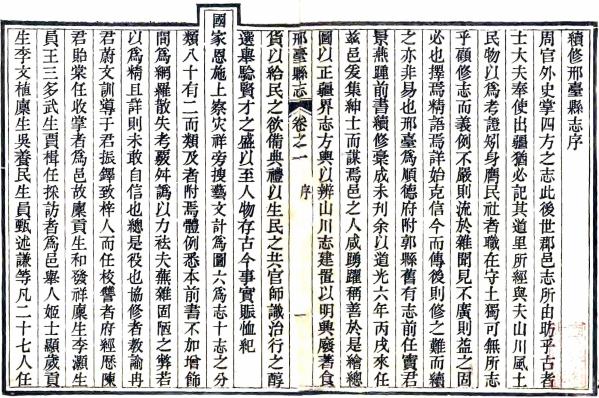 續修邢臺縣志序
周官外史掌四方之志此後世郡邑志所由昉乎古者
士大夫奉使出疆猶必記其道里所經與夫山川風土
民物以爲考證矧身膺民社者職在守土獨可無所志
乎顧修志而義例不嚴則流於雜聞見不廣則益之固
必也擇焉精語焉詳始克信今而傳後則修之難而續
之亦非易也邢臺爲順德府附郭縣舊有志前任竇君
景燕踵前書續修稾成未刋余以道光六年丙戌來任
茲邑爰集紳士而謀焉邑之人咸踴躍稱善於是繪總
圖以正疆界志方輿以辨山川志建置以明興廢著食
邢臺縣志 卷之一 序 一
貨以給民之欲備典禮以生民之共官師識治行之醇
選舉驗賢才之盛以至人物存古今事實賑恤紀
國家恩施上察災祥旁搜藝文計爲圖六爲志十志之分
類八十有二而類及者附焉體例悉本前書不加增飾
間爲網羅散失考覈舛譌以力袪夫蕪雜固陋之弊若
以爲精且詳則未敢自信也總是役也協修者教諭冉
君蔚文訓導于君振鐸致梓人而任校讐者府經歷陳
君貽棠任收掌者爲邑故廪貢生和發祥廪生李灝生
員王三多武生賈楫任採訪者爲邑舉人姬士顯歲貢
生李文植廪生吳養民生員甄述謙等凡二十七人任